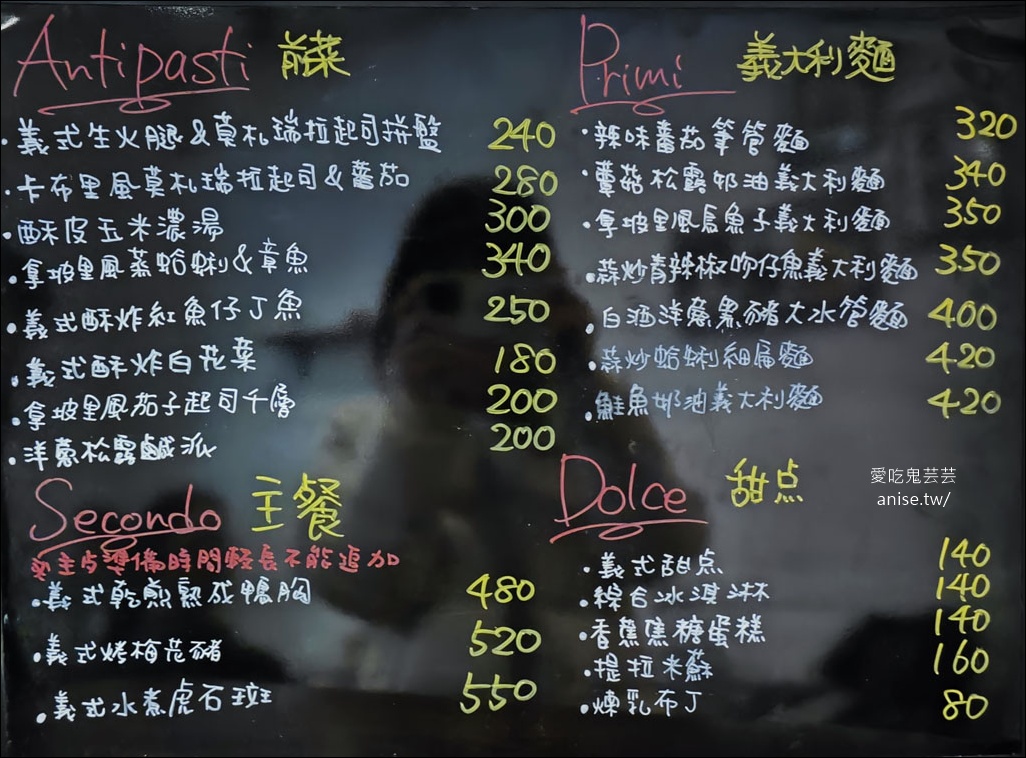 Antipasti 前菜
·義式生火腿&莫札瑞拉起司拼盤 240
·卡布里風莫札瑞拉起司&蕃茄 280
·酥皮玉米濃湯 300
·拿坡里風蒸蛤蜊&章魚 340
·義式酥炸紅魚仔丁魚 250
·義式酥炸白花菜 180
·拿坡里風茄子起司千層 200
·洋蔥松露鹹派 200
Primi 義大利麵
·辣味蕃茄筆管麵 320
·蕈菇松露奶油義大利麵 340
·拿坡里風烏魚子義大利麵 350
·蒜炒青辣椒吻仔魚義大利麵 350
·白酒洋蔥黑豬大水管麵 400
·蒜炒蛤蜊細扁麵 420
·鮭魚奶油義大利麵 420
Secondo 主餐
※主餐準備時間輕長不能追加
·義式乾煎熟成鴨胸 480
·義式烤梅花豬 520
·義式水煮虎石斑 550
Dolce 甜点
·義式甜点 140
·綜合冰淇淋 140
·香蕉焦糖蛋糕 140
·提拉米蘇 160
·煉乳布丁 80
愛吃鬼芸芸
anise.tw/